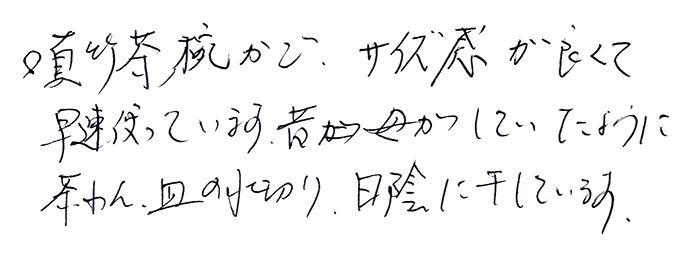 ○真竹茶椀かご、サイズ感が良くて
早速使っています。昔母がしていたように
茶わん、皿の水切り、日陰に干しています。